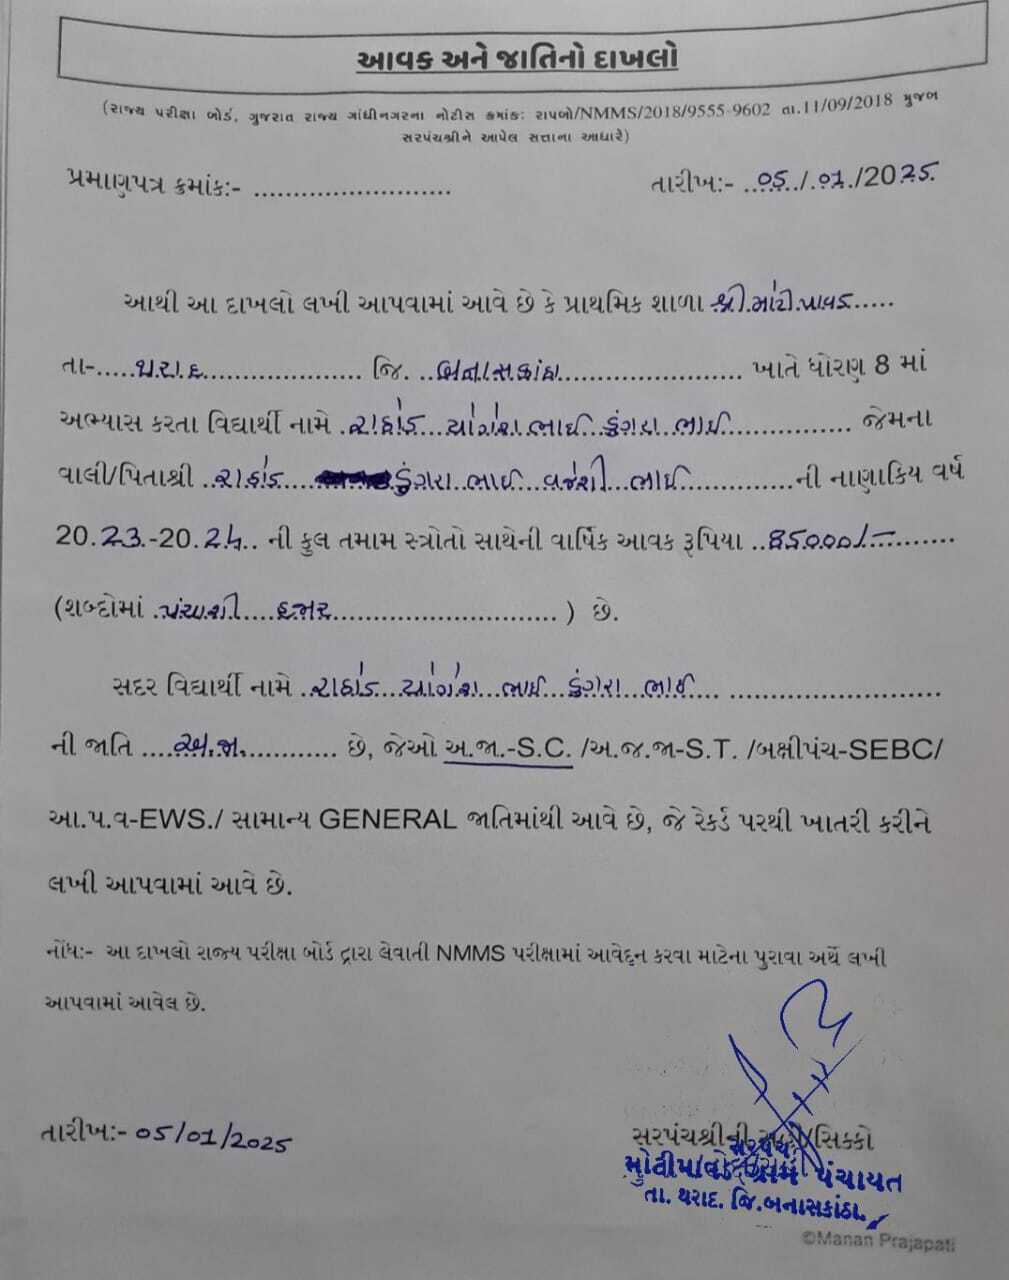 આવક અને જાતિનો દાખલો
(રાજ્ય પરીક્ષા બોર્ડ, ગુજરાત રાજ્ય ગાંધીનગરના નોટીસ ક્રમાંક: રાપબો/NMMS/2018/9555-9602 તા.11/09/2018 મુજબ
સરપંચશ્રીને આપેલ સત્તાના આધારે)
પ્રમાણપત્ર ક્રમાંક:- ........................ તારીખ:- ..05../.01./2025.
આથી આ દાખલો લખી આપવામાં આવે છે કે પ્રાથમિક શાળા શ્રી.મોટી.પાવડ.....
તા-.....થરાદ.................... જિ. ..બનાસકાંઠા....................... ખાતે ધોરણ 8 માં
અભ્યાસ કરતા વિદ્યાર્થી નામે .રાઠોડ...યોગેશ ભાઈ ડુંગરા ભાઈ................ જેમના
વાલી/પિતાશ્રી ..રાઠોડ.... ડુંગરા..ભાઈ...વજેશી...ભાઈ..............ની નાણાકિય વર્ષ
20.23.-20.24.. ની કુલ તમામ સ્ત્રોતો સાથેની વાર્ષિક આવક રૂપિયા ..85000/-..........
(શબ્દોમાં .પંચાશી....હજાર............................. ) છે.
સદર વિદ્યાર્થી નામે ..રાઠોડ...યોગેશ...ભાઈ...ડુંગરા...ભાઈ... ........................
ની જાતિ ....અ.જા............. છે, જેઓ અ.જા.-S.C. /અ.જ.જા-S.T. /બક્ષીપંચ-SEBC/
આ.પ.વ-EWS./ સામાન્ય GENERAL જાતિમાંથી આવે છે, જે રેકર્ડ પરથી ખાતરી કરીને
લખી આપવામાં આવે છે.
નોંધ:- આ દાખલો રાજ્ય પરીક્ષા બોર્ડ દ્વારા લેવાતી NMMS પરીક્ષામાં આવેદન કરવા માટેના પુરાવા અર્થે લખી
આપવામાં આવેલ છે.
તારીખ:- 05/01/2025
સરપંચશ્રીની સહી/સિક્કો
સરપંચ
મોટીપાવડ ગ્રામ પંચાયત
તા. થરાદ. જિ.બનાસકાંઠા.
©Manan Prajapati